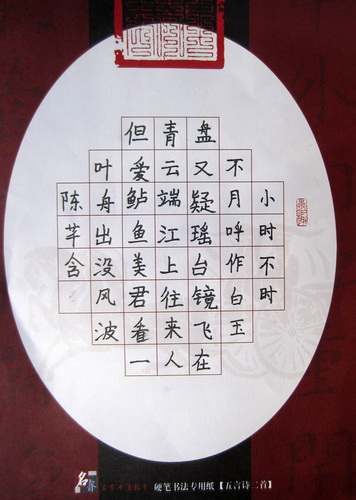 小时不时
不月呼作白玉
盘又疑瑶台镜飞在
青云端江上往来人
但爱鲈鱼美君看一
叶舟出没风波
陈芊含
硬笔书法专用纸【五言诗二首】